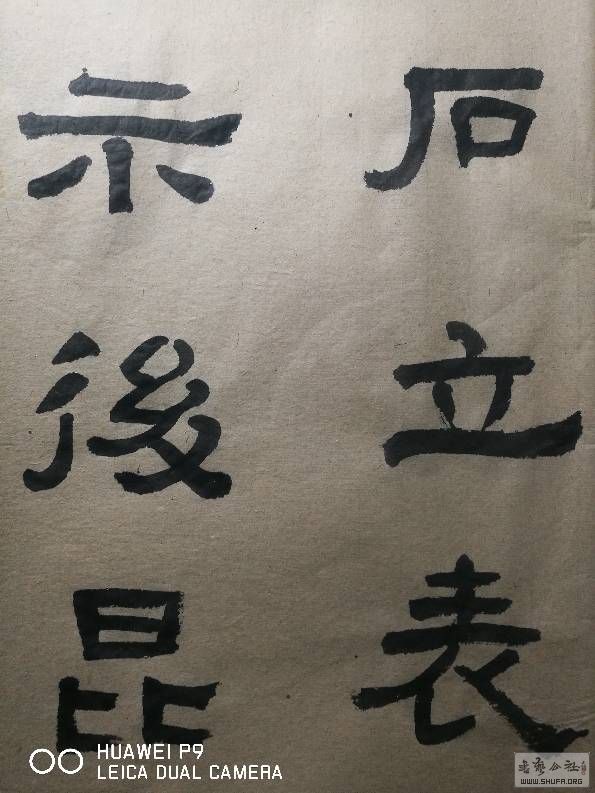 石立表
示後昆
HUAWEI P9
LEICA DUAL CAMERA
WWW.SHUFA.ORG